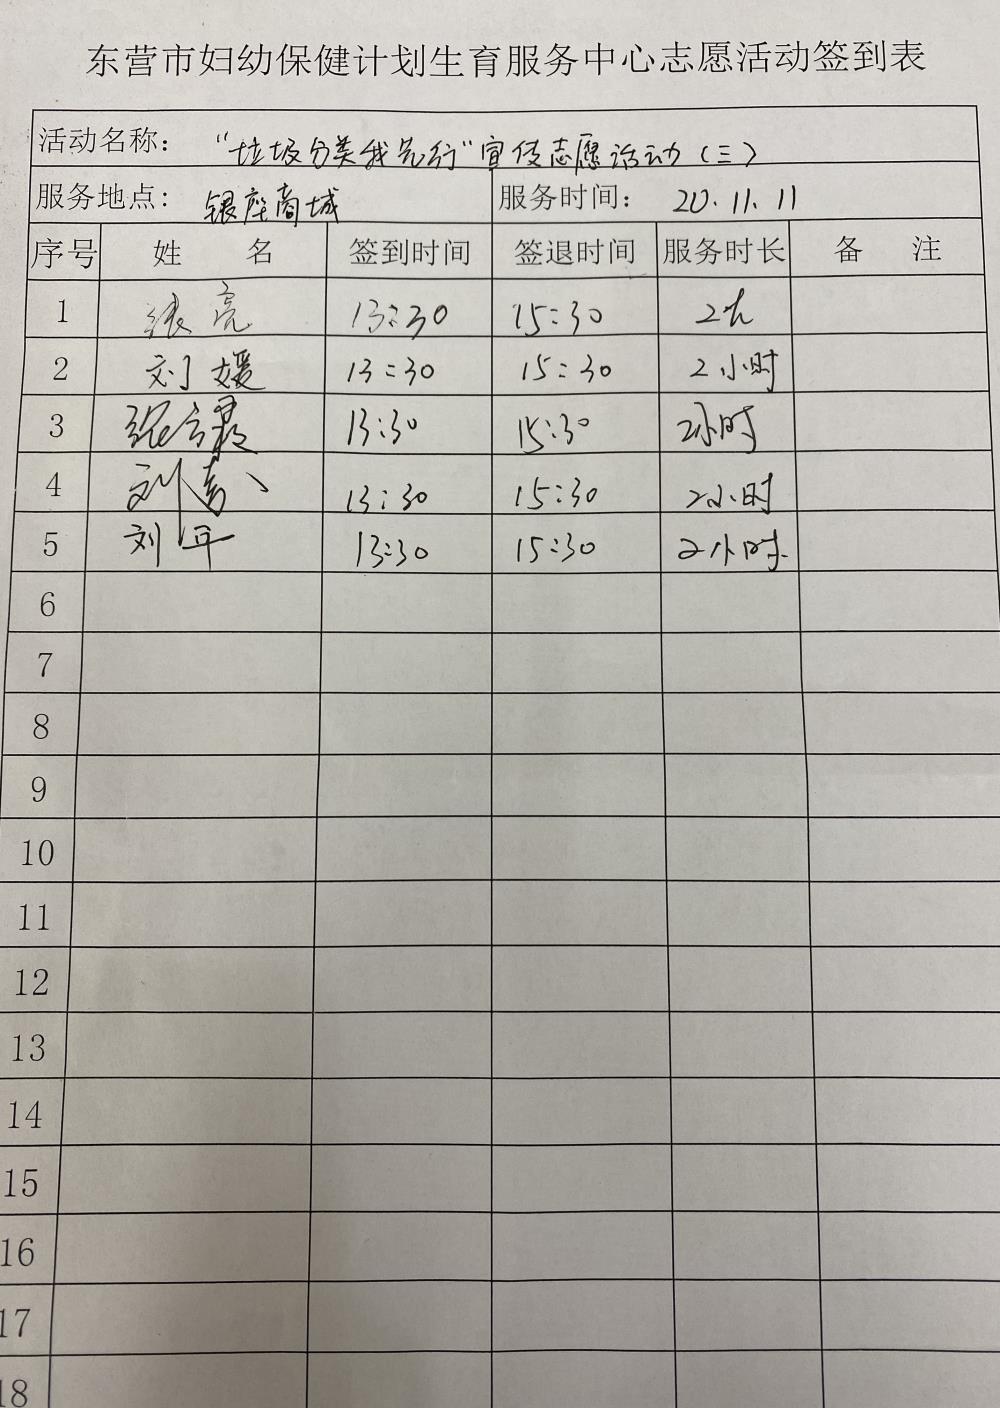 东营市妇幼保健计划生育服务中心志愿活动签到表
活动名称： “垃圾分类我先行”宣传志愿活动（三）
服务地点： 银座商城 服务时间： 20.11.11
序号 姓 名 签到时间 签退时间 服务时长 备 注
1 张亮 13:30 15:30 2h
2 刘媛 13:30 15:30 2小时
3 13:30 15:30 2小时
4 刘 13:30 15:30 2小时
5 刘平 13:30 15:30 2小时
6
7
8
9
10
11
12
13
14
15
16
17
18